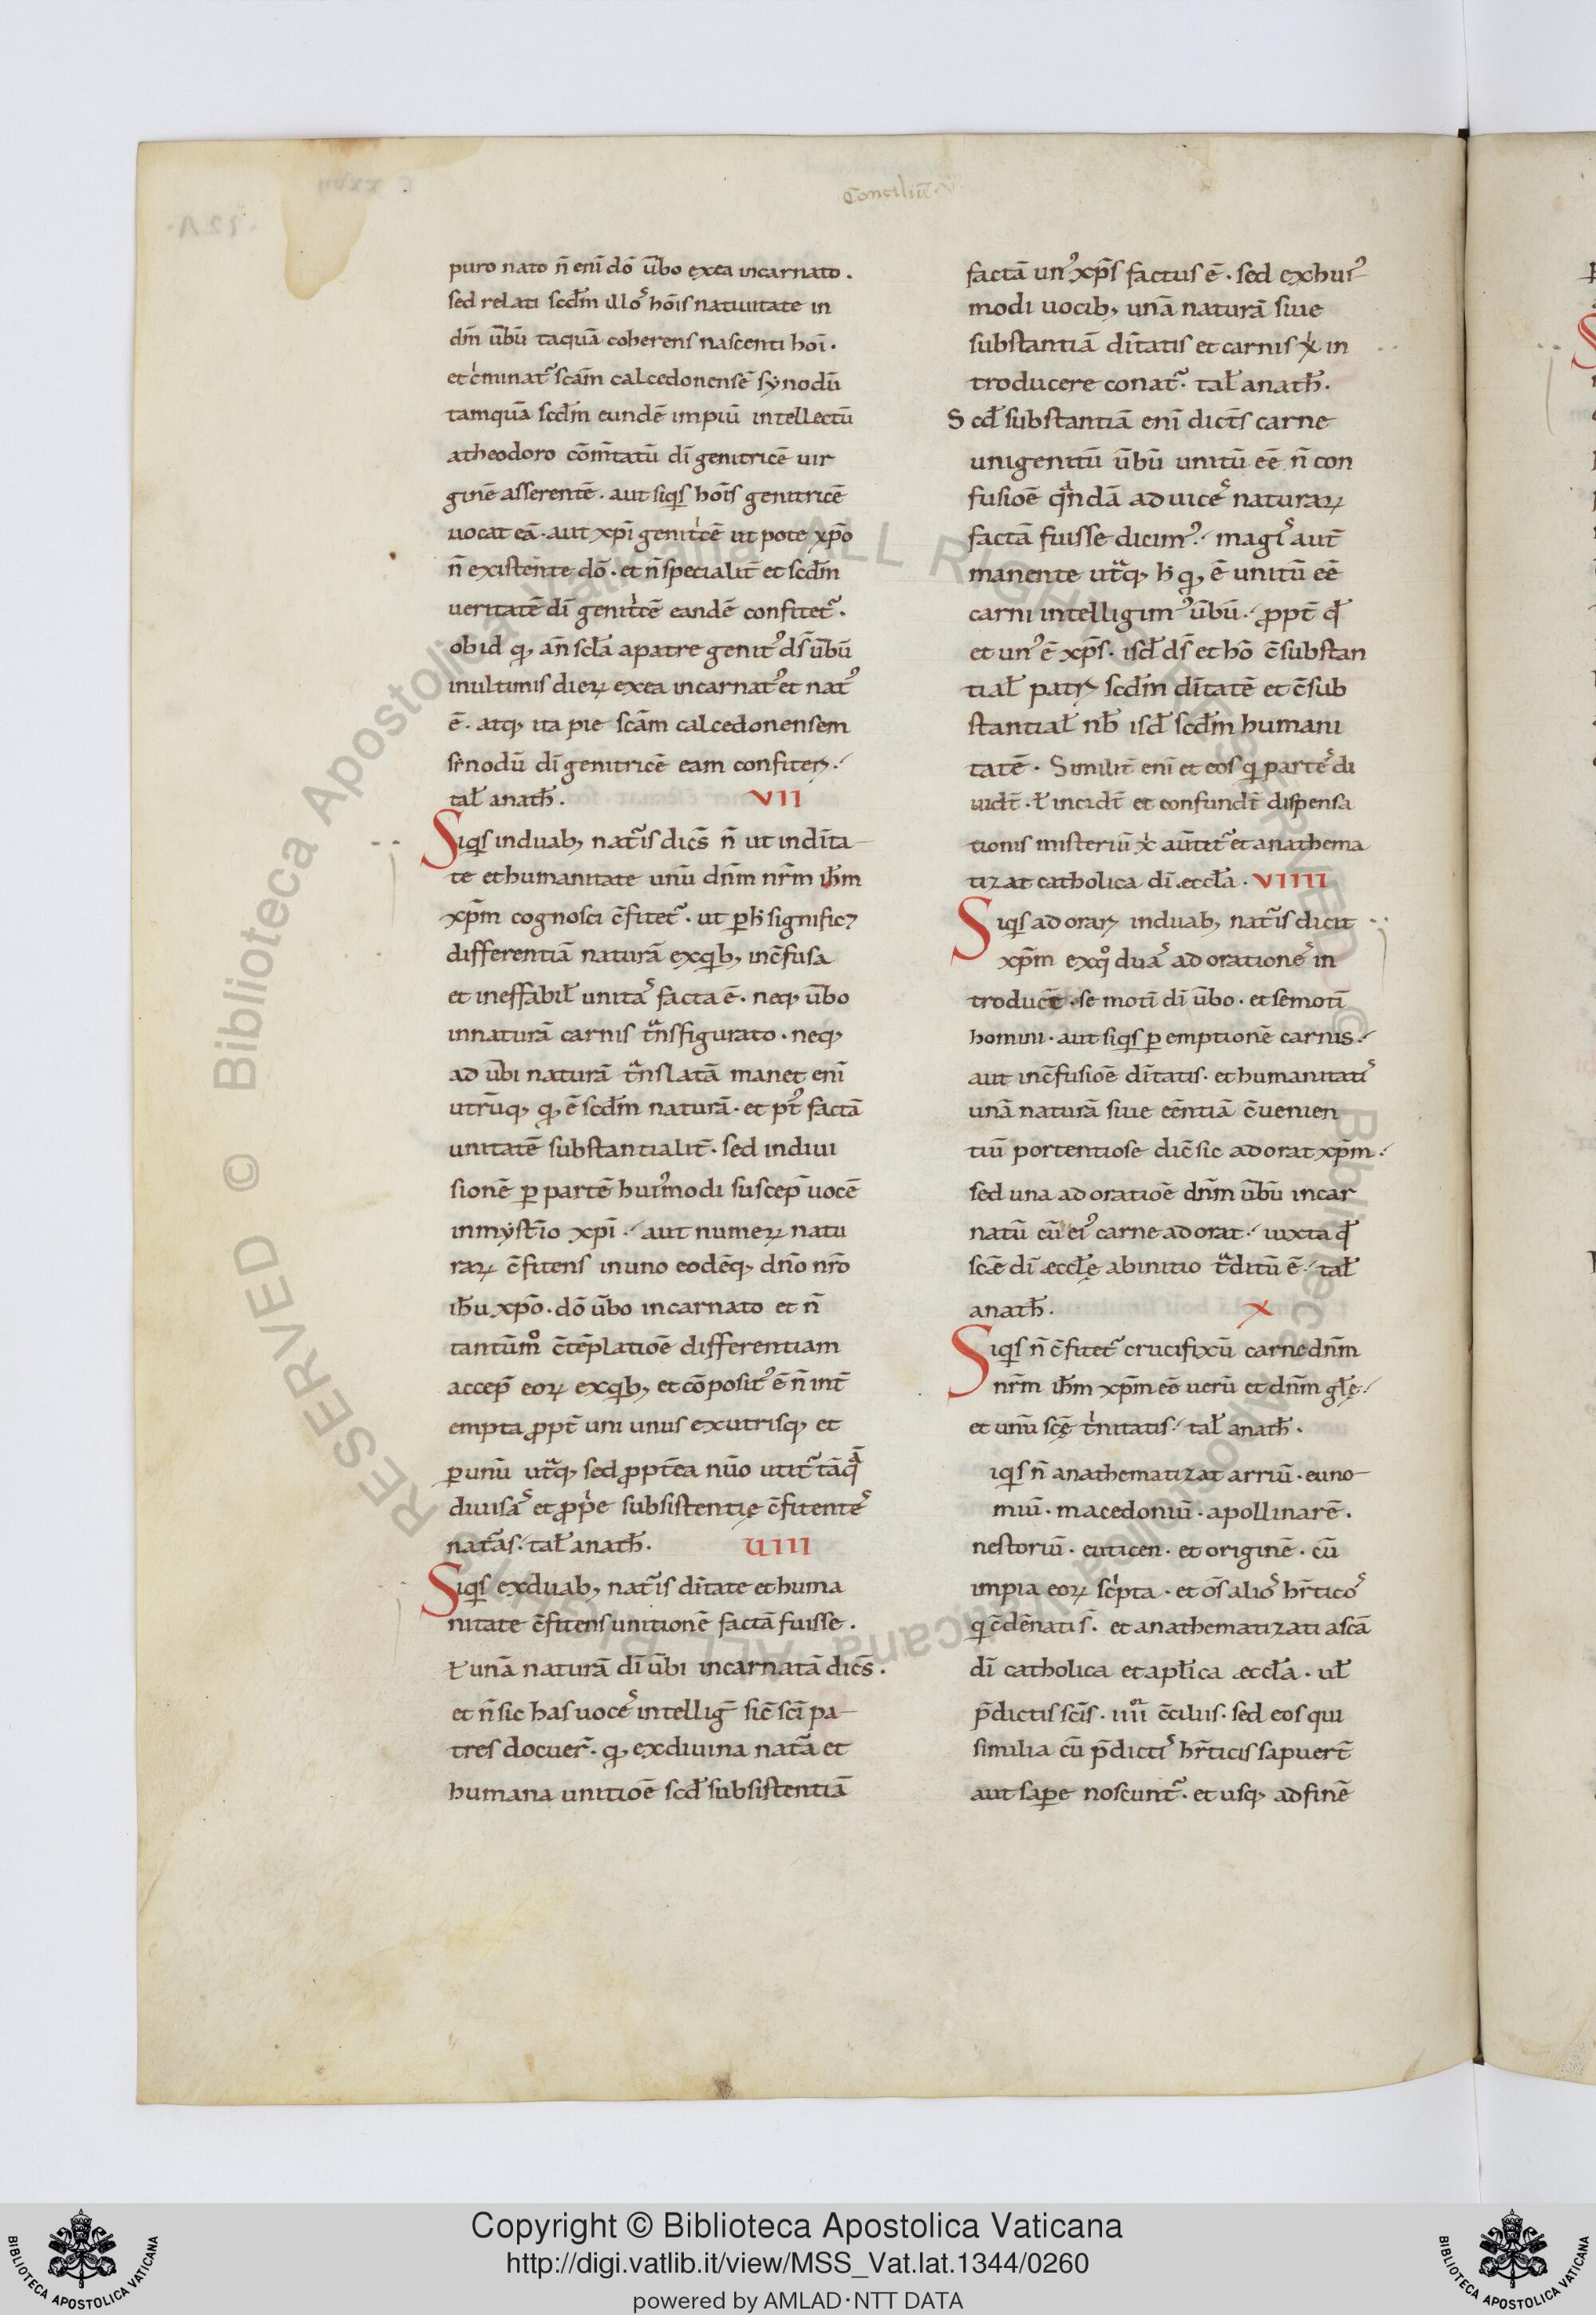 Conciliū · V
puro nato n̄ eni dō ūbo exea incarnato .
sed relati scd̄m illoꝰ hōis natiuitate in
dm̄ ūbū taquā coherens nascenti hoī .
et c̓minat̓ scām calcedonensē synodū
tamquā scd̄m eundē impiū intellectū
atheodoro cōm̄tatū dī genitricē uir
ginē asserentē . aut siqis hōis genitricē
uocat eā . aut xp̄i genit̓cē ut pote xp̄o
n̄ existente dō . et n̄ specialit̄ et scd̄m
ueritatē dī genit̓cē eandē confitet̓ .
obid q, an̄ scl̄a apatre genitꝰ ds̄ ūbū
inultimis dieꝝ exea incarnatꝰ et natꝰ
ē . atq, ita pie scām calcedonensem
sinodū dī genitricē eam confiteꝝ .
tal̄ anath̄ . VII
Siqis induab, nat̓is dicēs n̄ ut indīta
te ethumanitate unū dn̄m nr̄m ih̄m
xp̄m cognosci c̄fitet̓ . ut ꝑ h̄ signific7
differentiā naturā exqib, inc̄fusa
et ineffabil̄ unitaꝰ facta ē . neq, ūbo
innaturā carnis t̄nsfigurato . neq,
ad ūbi naturā t̄nslatā manet enī
utrūq, q, ē scd̄m naturā . et ptꝰ factā
unitatē substantialit̄ . sed indiui
sionē ꝑ partē huiꝰmodi suscep̄ uocē
inmystīo xp̄i . aut numeꝝ natu
raꝝ c̄fitens inuno eodēq, dn̄o nr̄o
ih̄u xp̄o . dō ūbo incarnato et n̄
tantūm̊ c̄tēplatiōē differentiam
accep̄ eoꝝ exqib, et cōpositꝰ ē n̄ int̄
empta ꝓpt̄ uni unus exutrisq, et
ꝑ unū ut̓q, sed ꝓpt̄ea nūo utit̓ tāq̄
diuisaꝰ et ꝓp̓e subsistentię c̄fitenteꝰ
nat̓as . tal̄ anath̄ . UIII
Siqis exduab, nat̓is dītate ethuma
nitate c̄fitens unitionē factā fuisse .
ł unā naturā dī ūbi incarnatā dicēs .
et n̄ sic has uoceꝰ intelliḡ sic̄ scī pa
tres docuer̄ . q, exdiuina nat̓a et
humana unitiōē scd̄ subsistentiā
factā unꝰ xp̄s factus ē . sed exhuiꝰ
modi uocib, unā naturā siue
substantiā dītatis et carnis xi̓ in
troducere conat̓ . tal̄ anath̄ .
Scd̄ substantiā enī dict̄s carne
unigenitū ūbū unitū eē n̄ con
fusiōē q̄ndā aduiceꝰ naturaꝝ
factā fuisse dicimꝰ . magiꝰ aut̄
manente ut̓q, h̄ q, ē unitū eē
carni intelligimꝰ ūbū . ꝓpt̄ qd̄
et unꝰ ē xp̄s . isd̄ ds̄ et hō c̄substan
tial̄ patꝝ scd̄m dītatē et c̄sub
stantial̄ nb̄ isd̄ scd̄m humani
tatē . Similit̄ enī et eos qi parteꝰ di
uidt̄ . ł incidt̄ et confundt̄ dispensa
tionis misteriū xi̓ aūtet̓ et anathema
tizat catholica dī . eccl̄a . VIIII
Siqis adoraꝝ induab, nat̓is dicit
xp̄m exq̊ duaꝰ adorationeꝰ in
troducēt . se motī dī ūbo . et semotī
homini . aut siqis ꝑ emptionē carnis .
aut inc̄fusiōē dītatis . et humanitatiꝰ
unā naturā siue eēntiā c̄uenien
tiū portentiose dic̄ sic adorat xp̄m .
sed una adoratiōē dn̄m ūbū incar
natū cū eiꝰ carne adorat . iuxta qd̄
scæ dī æccl̄ę abinitio t̄ditū ē . tal̄
anath̄ . X
Siqis n̄ c̄fitet̓ crucifixū carne dn̄m
nr̄m ih̄m xp̄m eē uerū et dn̄m gl̄ę .
et unū scę t̓nitatis . tal̄ anath̄ .
iqis n̄ anathematizat arriū . euno
miū . macedoniū . apollinarē .
nestoriū . euticen . et originē . cū
impia eoꝝ sc̓pta . et ōs alioꝰ hr̄ticoꝰ
qi c̄dēnati s̄ . et anathematizati ascā
dī catholica et apl̄ica æccl̄a . ul̄
p̄dictis scīs . iiiior c̄ciliis . sed eos qui
similia cū p̄dictiꝰ hr̄ticis sapuert̄
aut saꝑe noscunt̓ . et usq, adfinē
Copyright © Biblioteca Apostolica Vaticana
http://digi.vatlib.it/view/MSS_Vat.lat.1344/0260
powered by AMLAD·NTT DATA
BIBLIOTECA APOSTOLICA VATICANA
BIBLIOTECA APOSTOLICA VATICANA